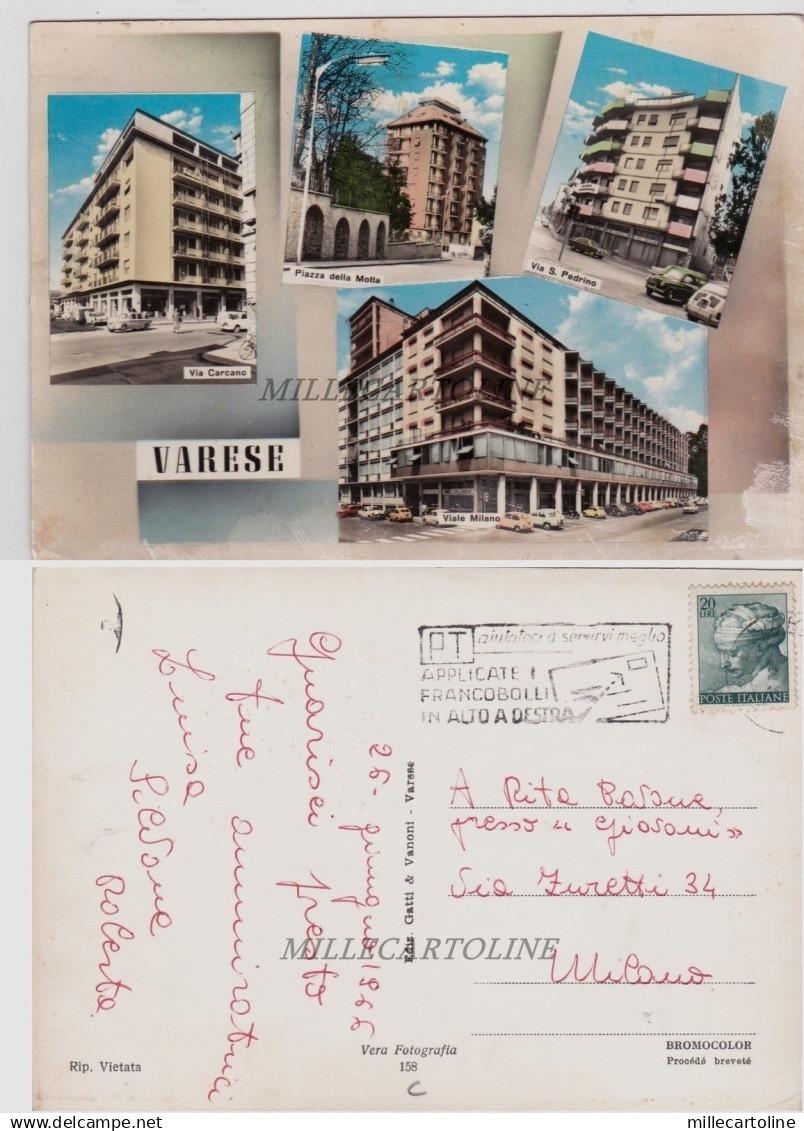 Piazza della Motta
Via S. Pedrino
Via Carcano
MILLECARTOLINE
VARESE
Viale Milano
PT aiutateci a servirvi meglio
APPLICATE I
FRANCOBOLLI
IN ALTO A DESTRA
20
LIRE
POSTE ITALIANE
26 - giugno 1966
Guarisci presto
tue ammiratrici
Luisa
Silvana
Roberta
A Rita Pavone,
presso "Giovani"
Via Zuretti 34
Milano
Ediz. Gatti & Vanoni - Varese
MILLECARTOLINE
Rip. Vietata
Vera Fotografia
158
BROMOCOLOR
Procédé breveté
delcampe.net
millecartoline